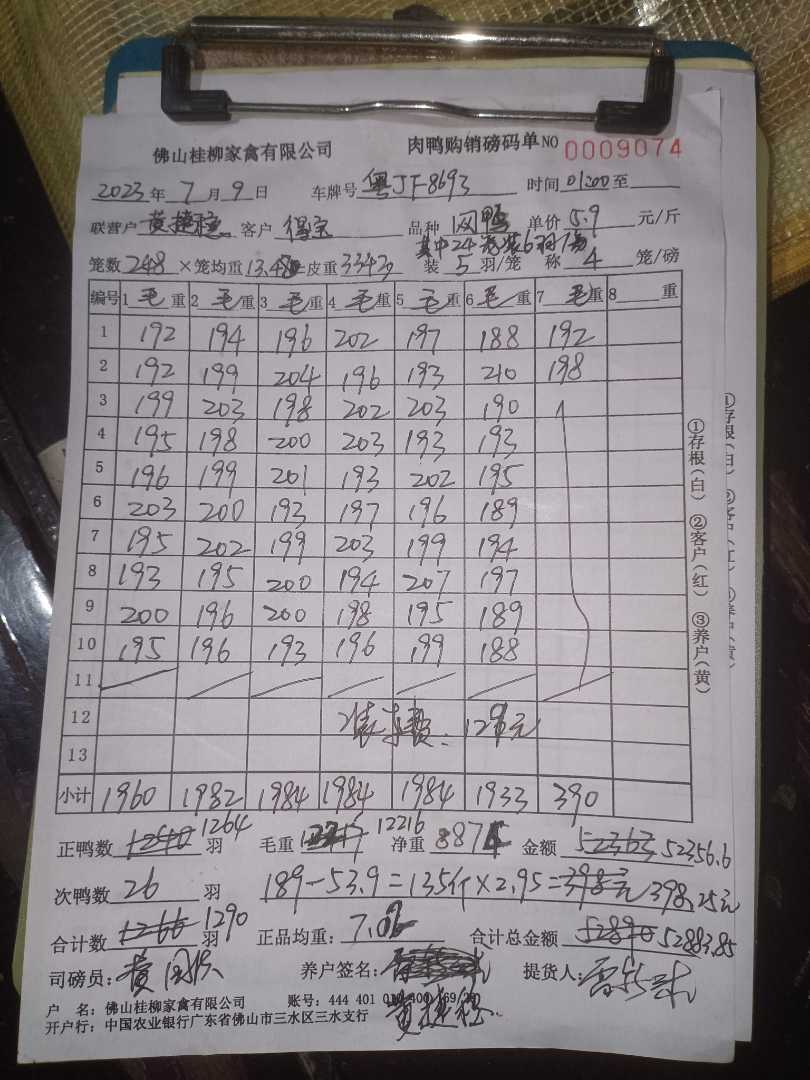 佛山桂柳家禽有限公司 肉鸭购销磅码单 NO 0009074
2023年7月9日 车牌号 粤JF8693 时间 01:00至
联营户 黄捷稳 客户 得宝 品种 网鸭 单价 5.9 元/斤
其中24 装6羽/笼
笼数 248 ×笼均重 13.48 =皮重 3343 装 5 羽/笼 称 4 笼/磅
编号 1 毛重 2 毛重 3 毛重 4 毛重 5 毛重 6 毛重 7 毛重 8 重
1 192 194 196 202 197 188 192
2 192 199 204 196 193 210 198
3 199 203 198 202 203 190
4 195 198 200 203 193 193
5 196 199 201 193 202 195
6 203 200 193 197 196 189
7 195 202 199 203 199 194
8 193 195 200 194 207 197
9 200 196 200 198 195 189
10 195 196 193 196 199 188
11
12 装车费: 129元
13
小计 1960 1982 1984 1984 1984 1933 390
正鸭数 1240 1264 羽 毛重 12217 12216 净重 8874 金额 52363 52356.6
次鸭数 26 羽 189-53.9=135斤×2.95=398元 398.25元
合计数 1266 1290 羽 正品均重: 7.02 合计总金额 52890 52883.85
司磅员: 黄 养户签名: 黄捷稳 提货人:
户 名: 佛山桂柳家禽有限公司 账号: 444 401 010 400 169
开户行: 中国农业银行广东省佛山市三水区三水支行
①存根(白) ②客户(红) ③养户(黄)